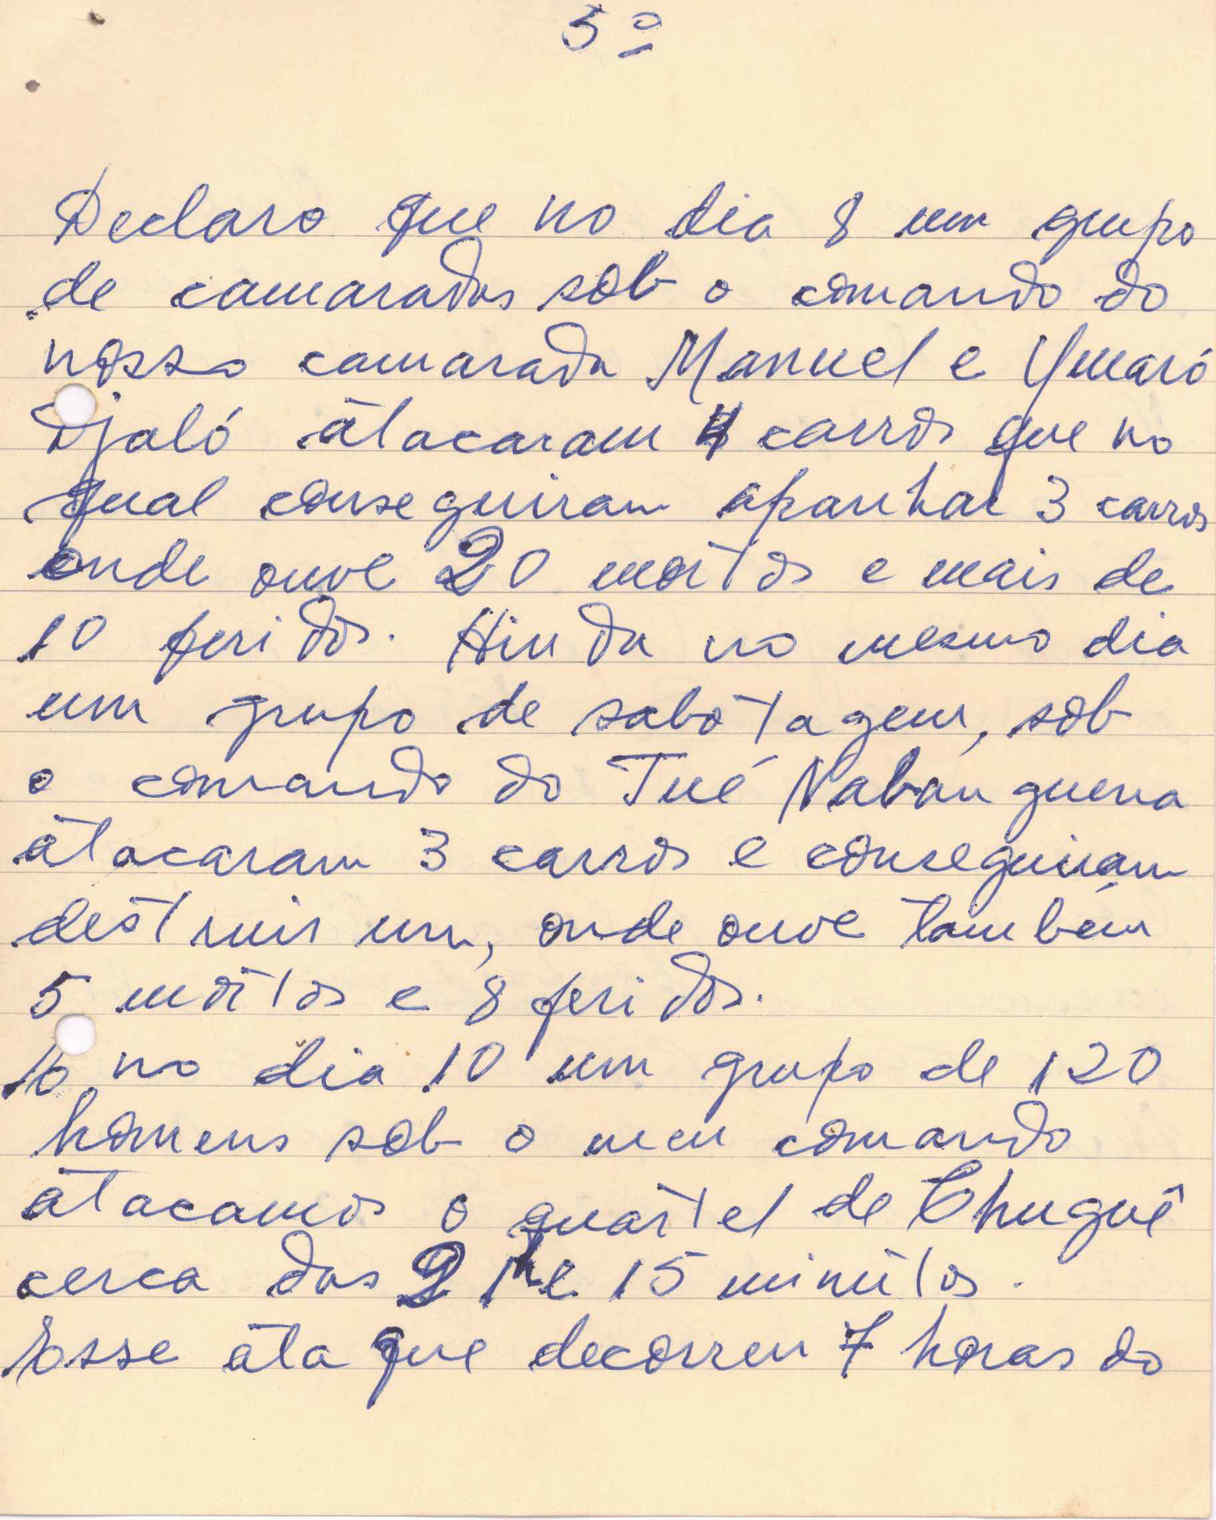 5º
Declaro que no dia 8 um grupo
de camaradas sob o comando do
nosso camarada Manuel e Ymaró
Djaló atacaram 4 carros que no
qual conseguiram apanhar 3 carros
onde ouve 20 mortos e mais de
10 feridos. Hinda no mesmo dia
um grupo de sabotagem, sob
o comando do Tué Nabanguena
atacaram 3 carros e conseguiram
destruir um, onde ouve também
5 mortos e 8 feridos.
E no dia 10 um grupo de 120
homens sob o meu comando
atacamos o quartel de Chuguê
cerca das 21h e 15 minutos.
Esse ataque decorreu 7 horas do